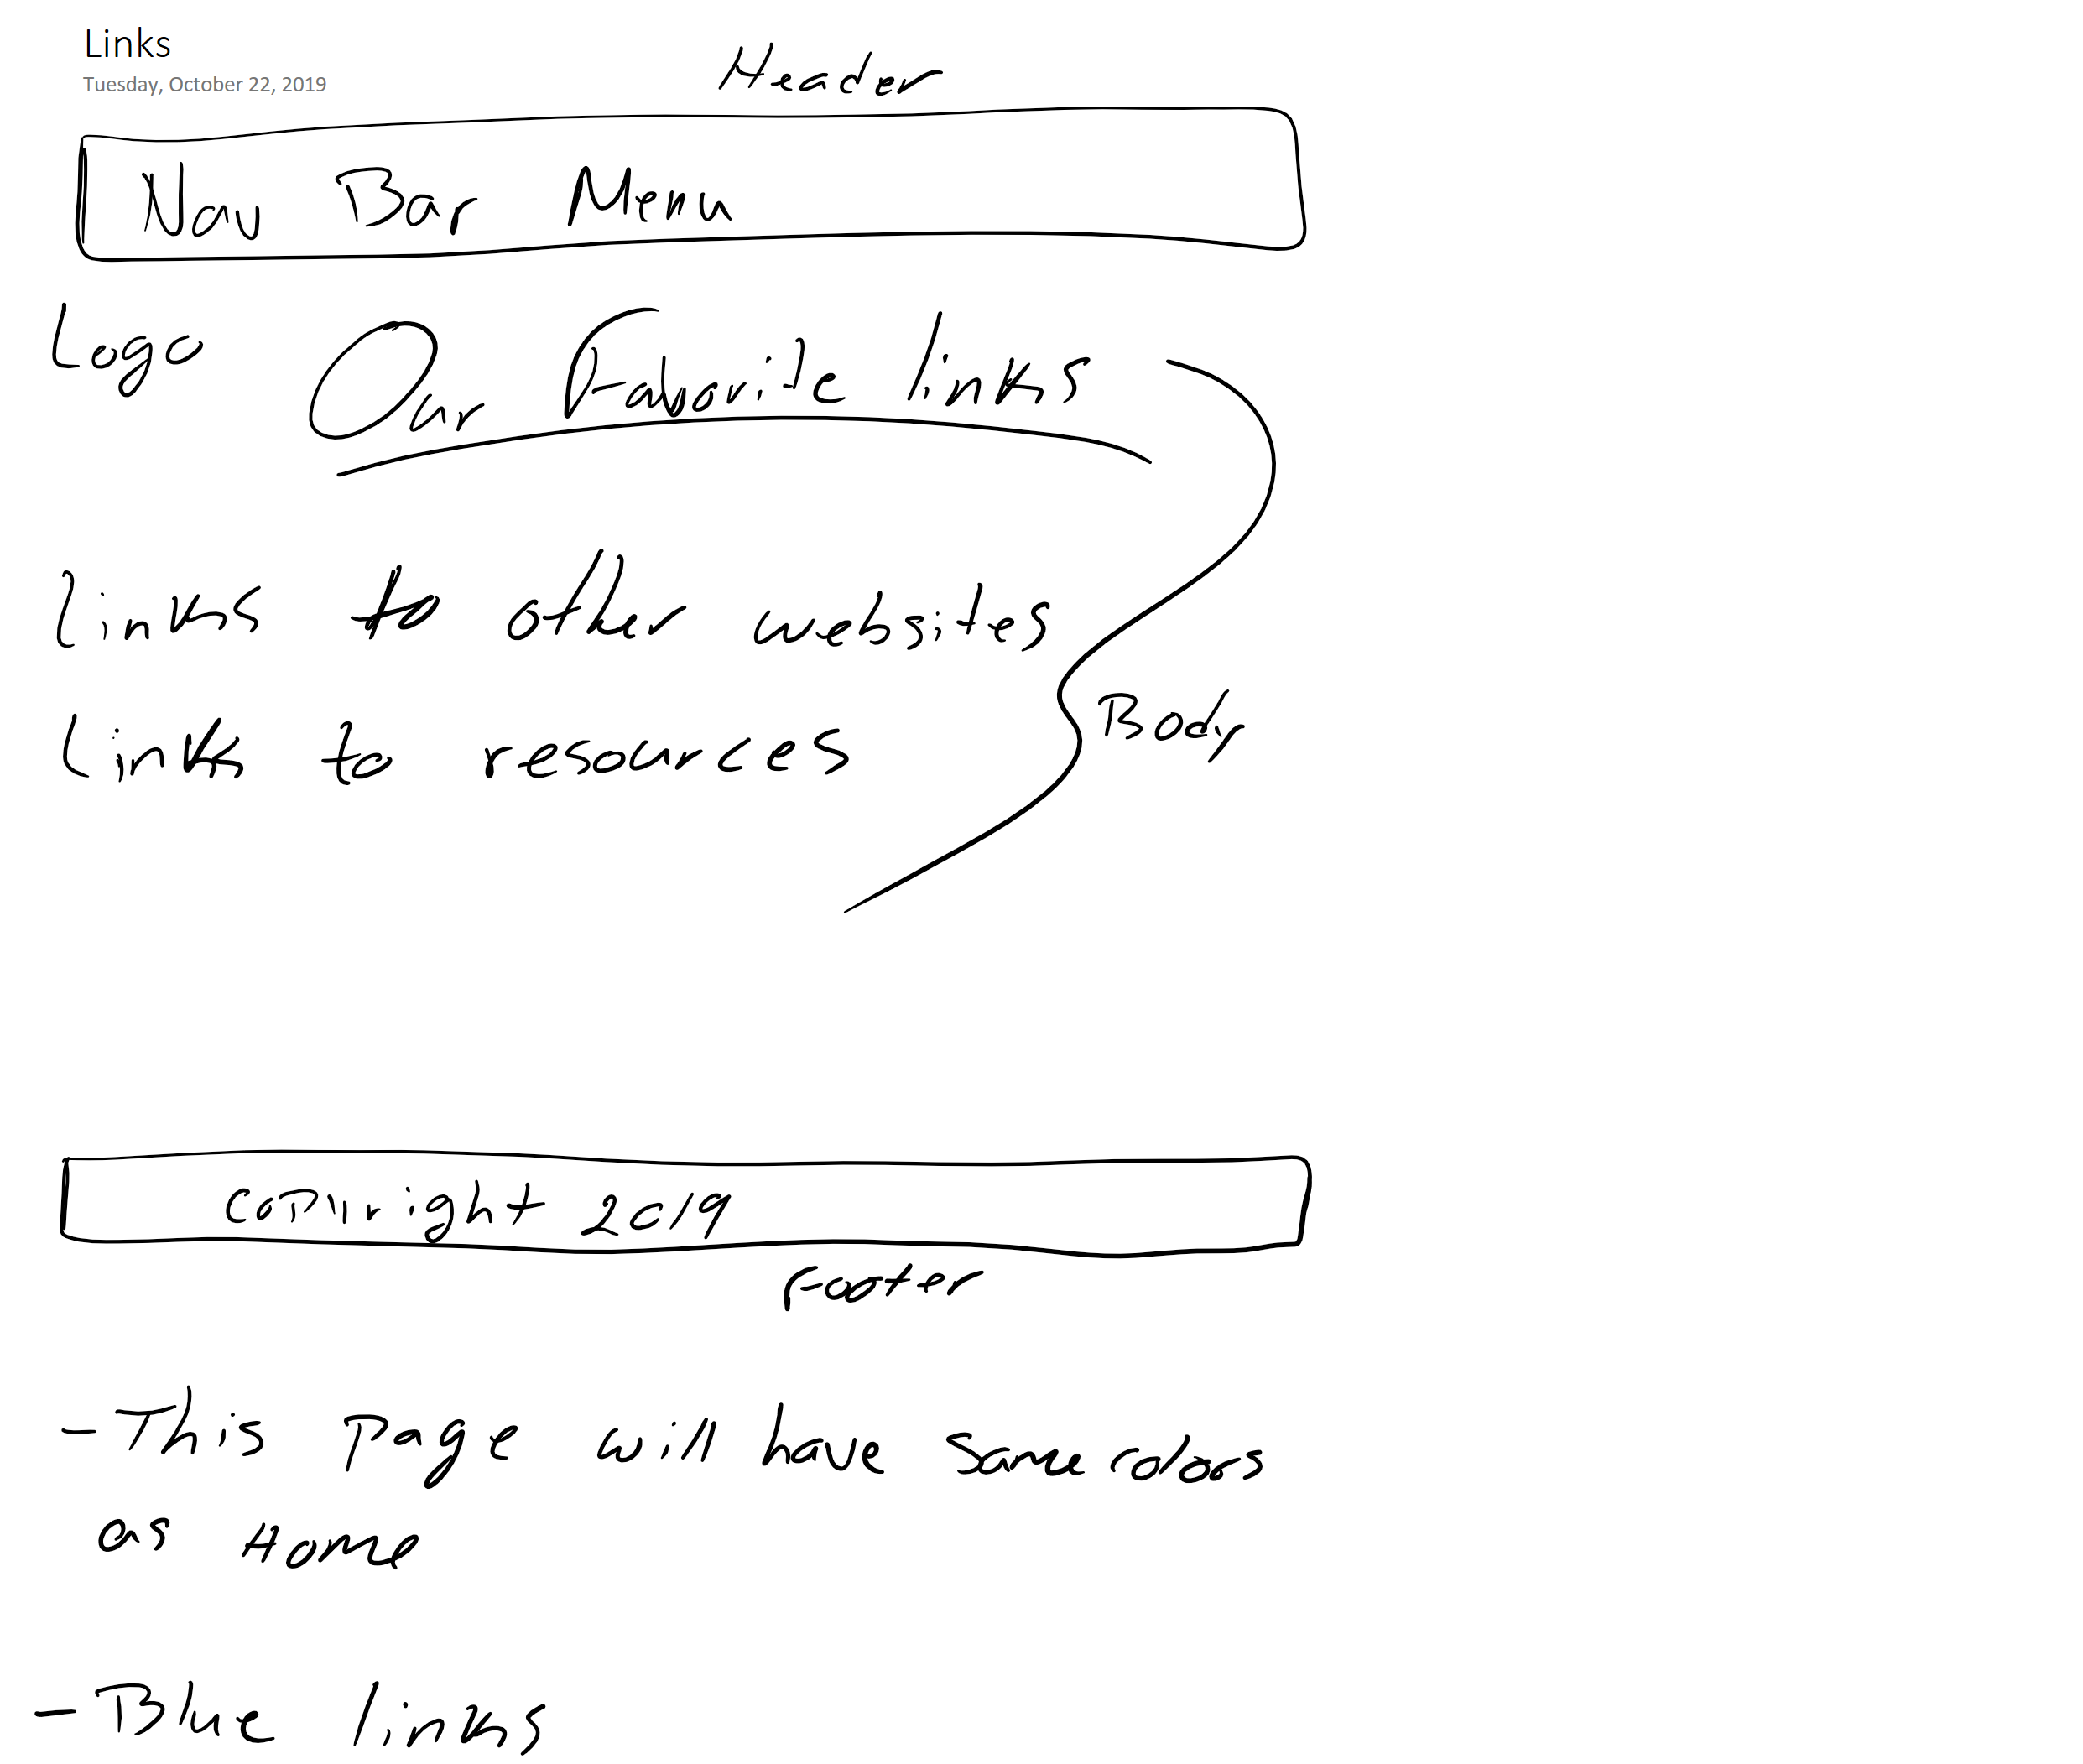 Links
Tuesday, October 22, 2019
Header
Nav Bar Menu
Logo
Our Favorite links
links to other websites
Links to resources
Body
Copyright 2019
Footer
- This Page will have same colors
as Home
- Blue links